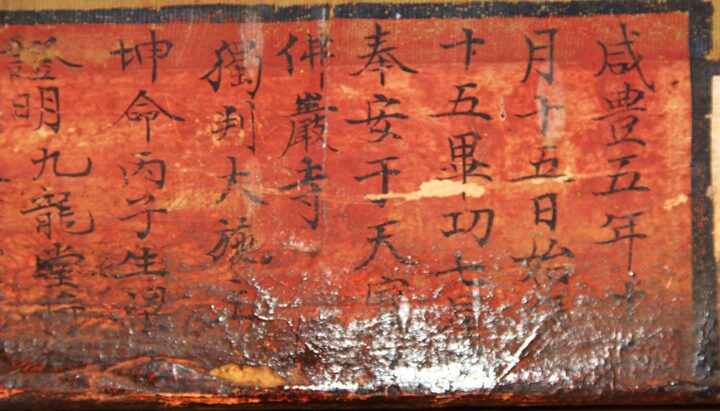 咸豊五年十
月十五日始
十五畢功七
奉安于天
佛巖寺
獨判大施
坤命丙子生
證明九龍堂